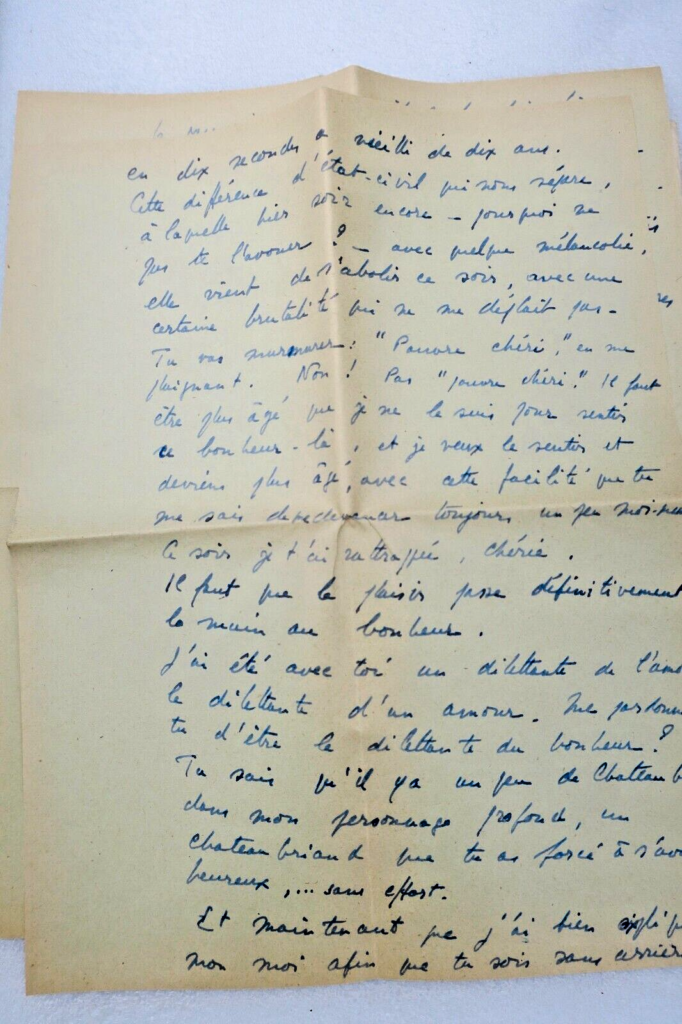 en dix secondes a vieilli de dix ans.
Cette différence d'état-civil qui nous sépare,
à laquelle hier soir encore – pourquoi ne
pas te l'avouer ? – avec quelque mélancolie,
elle vient de s'abolir ce soir, avec une
certaine brutalité qui ne me déplait pas –
Tu vas murmurer : "Pauvre chéri", en me
plaignant. Non ! Pas "pauvre chéri". Il faut
être plus âgé que je ne le suis pour sentir
ce bonheur-là, et je veux le sentir et
deviens plus âgé, avec cette facilité que tu
me sais de redevenir toujours un peu moi-
Ce soir je t'ai rattrappée, chérie.
Il faut que le plaisir passe définitivement
la main au bonheur.
J'ai été avec toi un dilettante de l'amo
le dilettante d'un amour. Me pardonn
tu d'être le dilettante du bonheur ?
Tu sais qu'il y a un peu de Chateaub
dans mon personnage profond, un
chateaubriand que tu as forcé à s'avo
heureux,... sans effort.
Et maintenant que j'ai bien expliq
mon moi afin que tu sois sans arrière